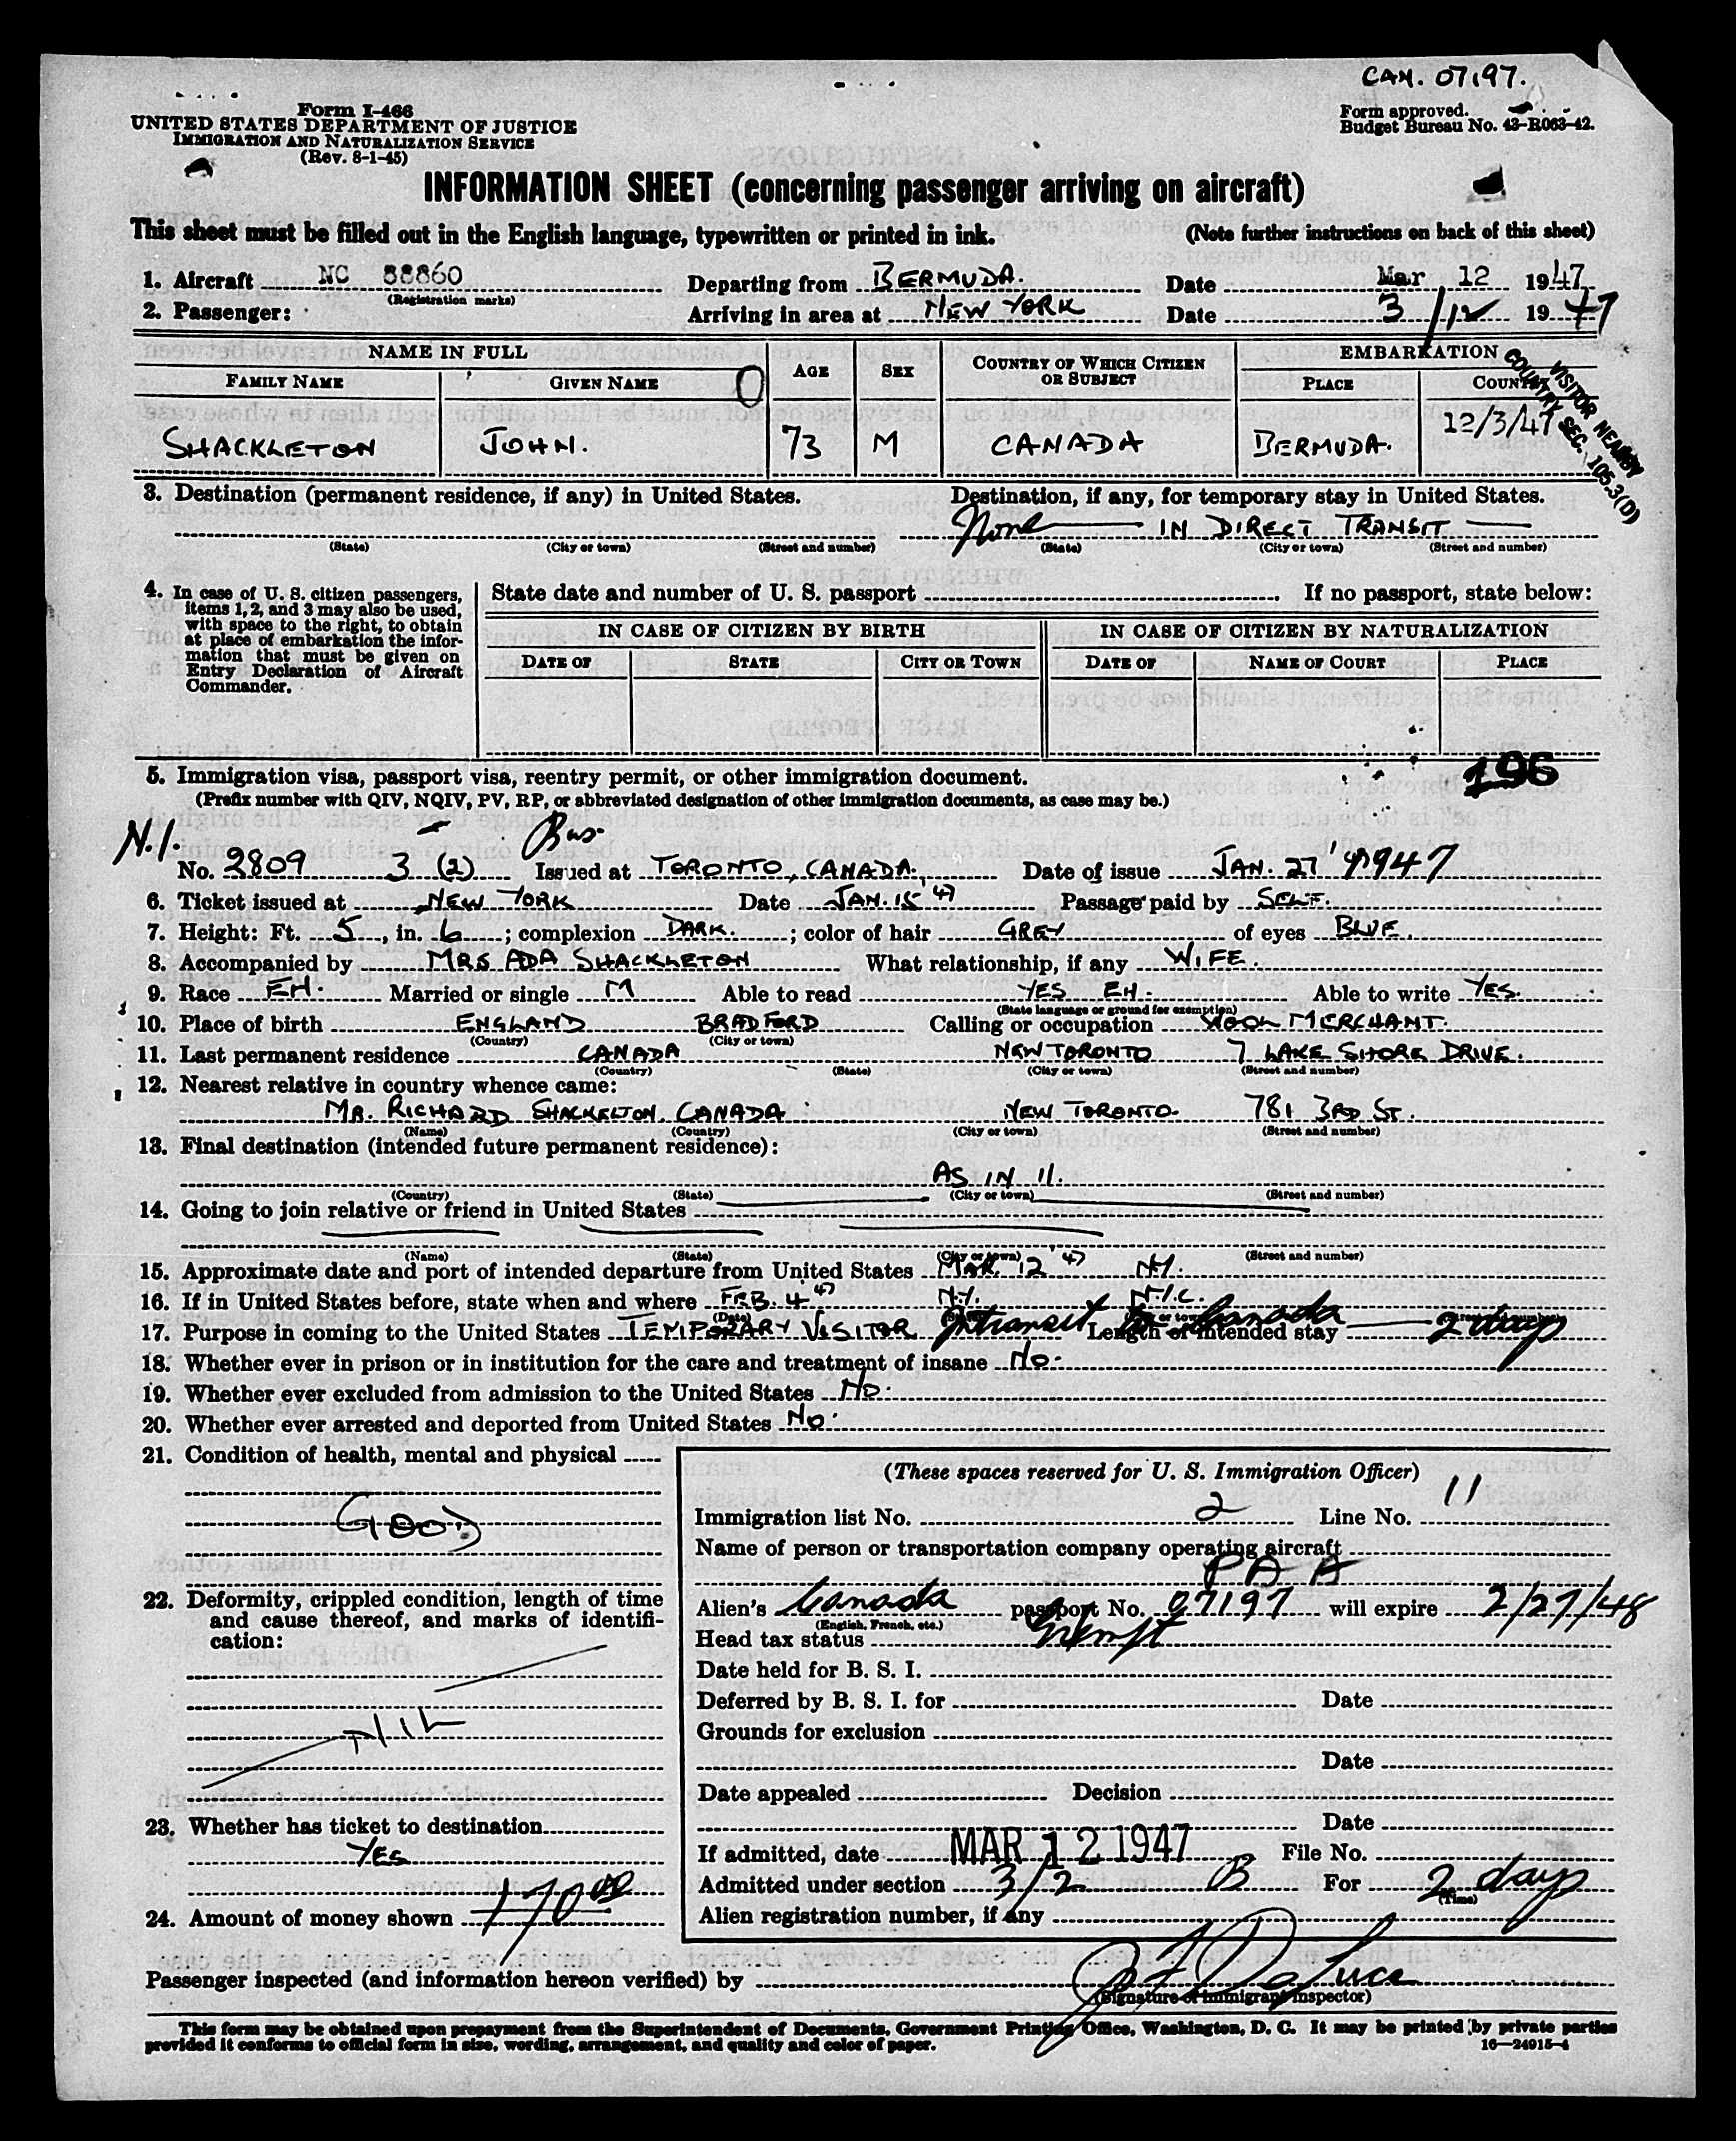 CAN. 07197.
Form I-466
UNITED STATES DEPARTMENT OF JUSTICE
IMMIGRATION AND NATURALIZATION SERVICE
(Rev. 8-1-45)
Form approved.
Budget Bureau No. 43-R063-42.
INFORMATION SHEET (concerning passenger arriving on aircraft)
This sheet must be filled out in the English language, typewritten or printed in ink. (Note further instructions on back of this sheet)
1. Aircraft NC 88860 Departing from BERMUDA. Date Mar 12 1947
(Registration marks)
2. Passenger: Arriving in area at NEW YORK Date 3/12 1947
NAME IN FULL AGE SEX COUNTRY OF WHICH CITIZEN OR SUBJECT EMBARKATION
FAMILY NAME GIVEN NAME PLACE COUNTRY
VISITOR NEARBY
COUNTRY SEC. 105.3(D)
12/3/47
SHACKLETON JOHN. 73 M CANADA BERMUDA.
3. Destination (permanent residence, if any) in United States. Destination, if any, for temporary stay in United States.
None IN DIRECT TRANSIT
(State) (City or town) (Street and number) (State) (City or town) (Street and number)
4. In case of U. S. citizen passengers, items 1, 2, and 3 may also be used, with space to the right, to obtain at place of embarkation the information that must be given on Entry Declaration of Aircraft Commander.
State date and number of U. S. passport . If no passport, state below:
IN CASE OF CITIZEN BY BIRTH IN CASE OF CITIZEN BY NATURALIZATION
DATE OF STATE CITY OR TOWN DATE OF NAME OF COURT PLACE
196
5. Immigration visa, passport visa, reentry permit, or other immigration document.
(Prefix number with QIV, NQIV, PV, RP, or abbreviated designation of other immigration documents, as case may be.)
N.I. Bus
No. 2809 3 (2) Issued at TORONTO, CANADA. Date of issue JAN. 27 1947
6. Ticket issued at NEW YORK Date JAN. 15 '47 Passage paid by SELF.
7. Height: Ft. 5, in. 6; complexion DARK.; color of hair GREY of eyes BLUE.
8. Accompanied by MRS ADA SHACKLETON What relationship, if any WIFE.
9. Race EH. Married or single M Able to read YES EH. Able to write YES.
(State language or ground for exemption)
10. Place of birth ENGLAND BRADFORD Calling or occupation WOOL MERCHANT.
(Country) (City or town)
11. Last permanent residence CANADA NEW TORONTO 7 LAKE SHORE DRIVE.
(Country) (State) (City or town) (Street and number)
12. Nearest relative in country whence came:
MR. RICHARD SHACKELTON. CANADA NEW TORONTO. 781 3RD ST.
(Name) (Country) (City or town) (Street and number)
13. Final destination (intended future permanent residence):
AS IN 11.
(Country) (State) (City or town) (Street and number)
14. Going to join relative or friend in United States
(Name) (State) (City or town) (Street and number)
15. Approximate date and port of intended departure from United States MAR 12 '47 NY.
16. If in United States before, state when and where FEB. 4 '47 N.Y. N.Y.C.
17. Purpose in coming to the United States TEMPORARY VISITOR Intransit to Canada Length of intended stay 2 days
18. Whether ever in prison or in institution for the care and treatment of insane No.
19. Whether ever excluded from admission to the United States No.
20. Whether ever arrested and deported from United States No.
21. Condition of health, mental and physical
GOOD
22. Deformity, crippled condition, length of time and cause thereof, and marks of identification:
NIL
23. Whether has ticket to destination
YES
24. Amount of money shown 170 00
(These spaces reserved for U. S. Immigration Officer)
Immigration list No. 2 Line No. 11
Name of person or transportation company operating aircraft
PAA
Alien's Canada passport No. 07197 will expire 2/27/48
(English, French, etc.)
Head tax status Exempt
Date held for B. S. I.
Deferred by B. S. I. for Date
Grounds for exclusion
Date
Date appealed Decision
Date
If admitted, date MAR 12 1947 File No.
Admitted under section 3/2 B For 2 days
(Time)
Alien registration number, if any
Passenger inspected (and information hereon verified) by
(Signature of immigrant inspector)
This form may be obtained upon prepayment from the Superintendent of Documents, Government Printing Office, Washington, D. C. It may be printed by private parties
provided it conforms to official form in size, wording, arrangement, and quality and color of paper. 16—24915-4